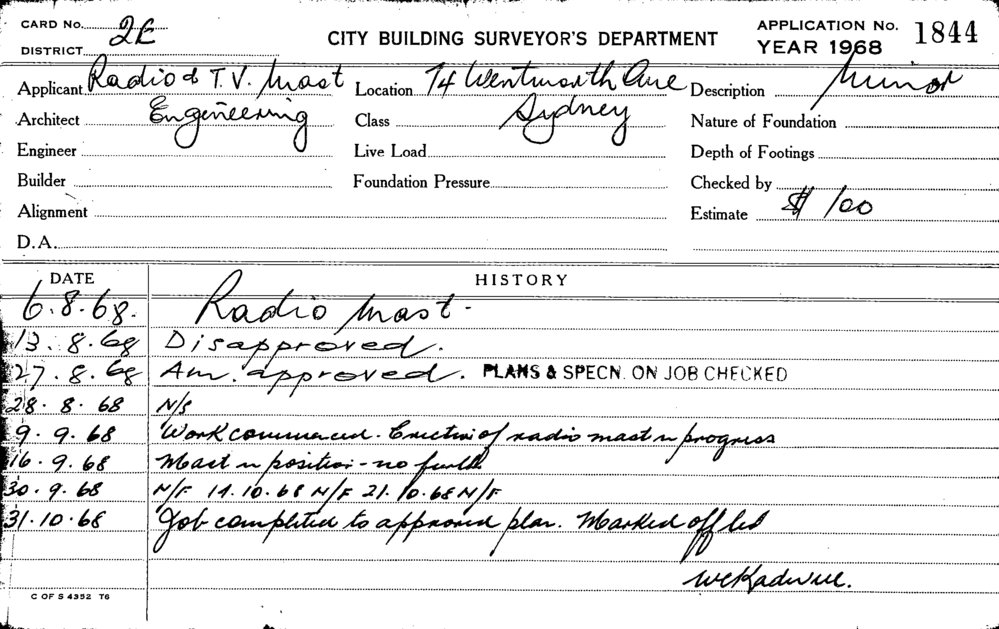 CARD No. 2E
DISTRICT
CITY BUILDING SURVEYOR'S DEPARTMENT
APPLICATION No. 1844
YEAR 1968
Applicant Radio & T.V. Mast Location 74 Wentworth Ave Description Minor
Architect Engineering Class Sydney Nature of Foundation
Engineer Live Load Depth of Footings
Builder Foundation Pressure Checked by
Alignment Estimate $ 100
D.A.
DATE HISTORY
6.8.68. Radio Mast.
13.8.68 Disapproved.
27.8.68 Am. approved. PLANS & SPECN. ON JOB CHECKED
28.8.68 N/S
9.9.68 Work commenced. Erection of radio mast in progress
16.9.68 Mast in position - no further
30.9.68 N/F 14.10.68 N/F 21.10.68 N/F
31.10.68 Job completed to approved plan. Marked off
C OF S 4352 T6